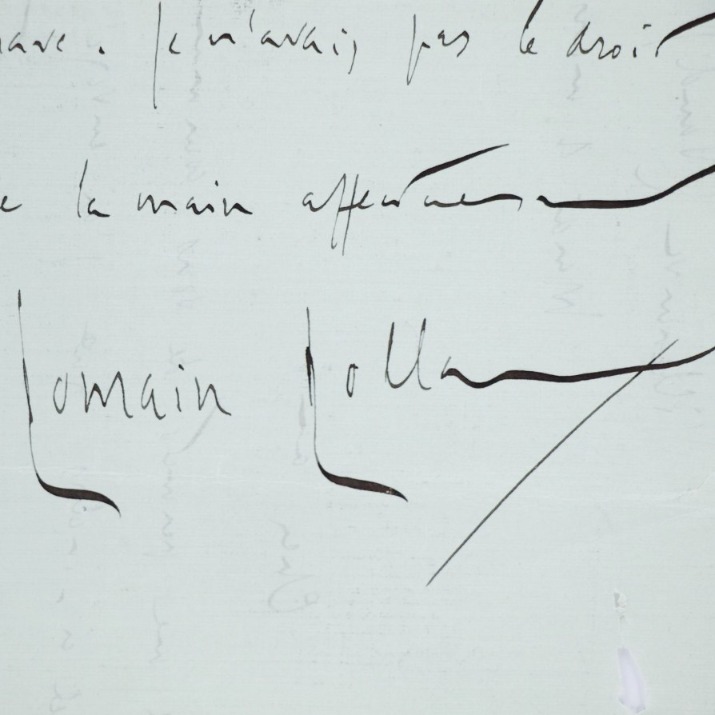 je n'avais pas le droit
la main affectueusement
Romain Rolland